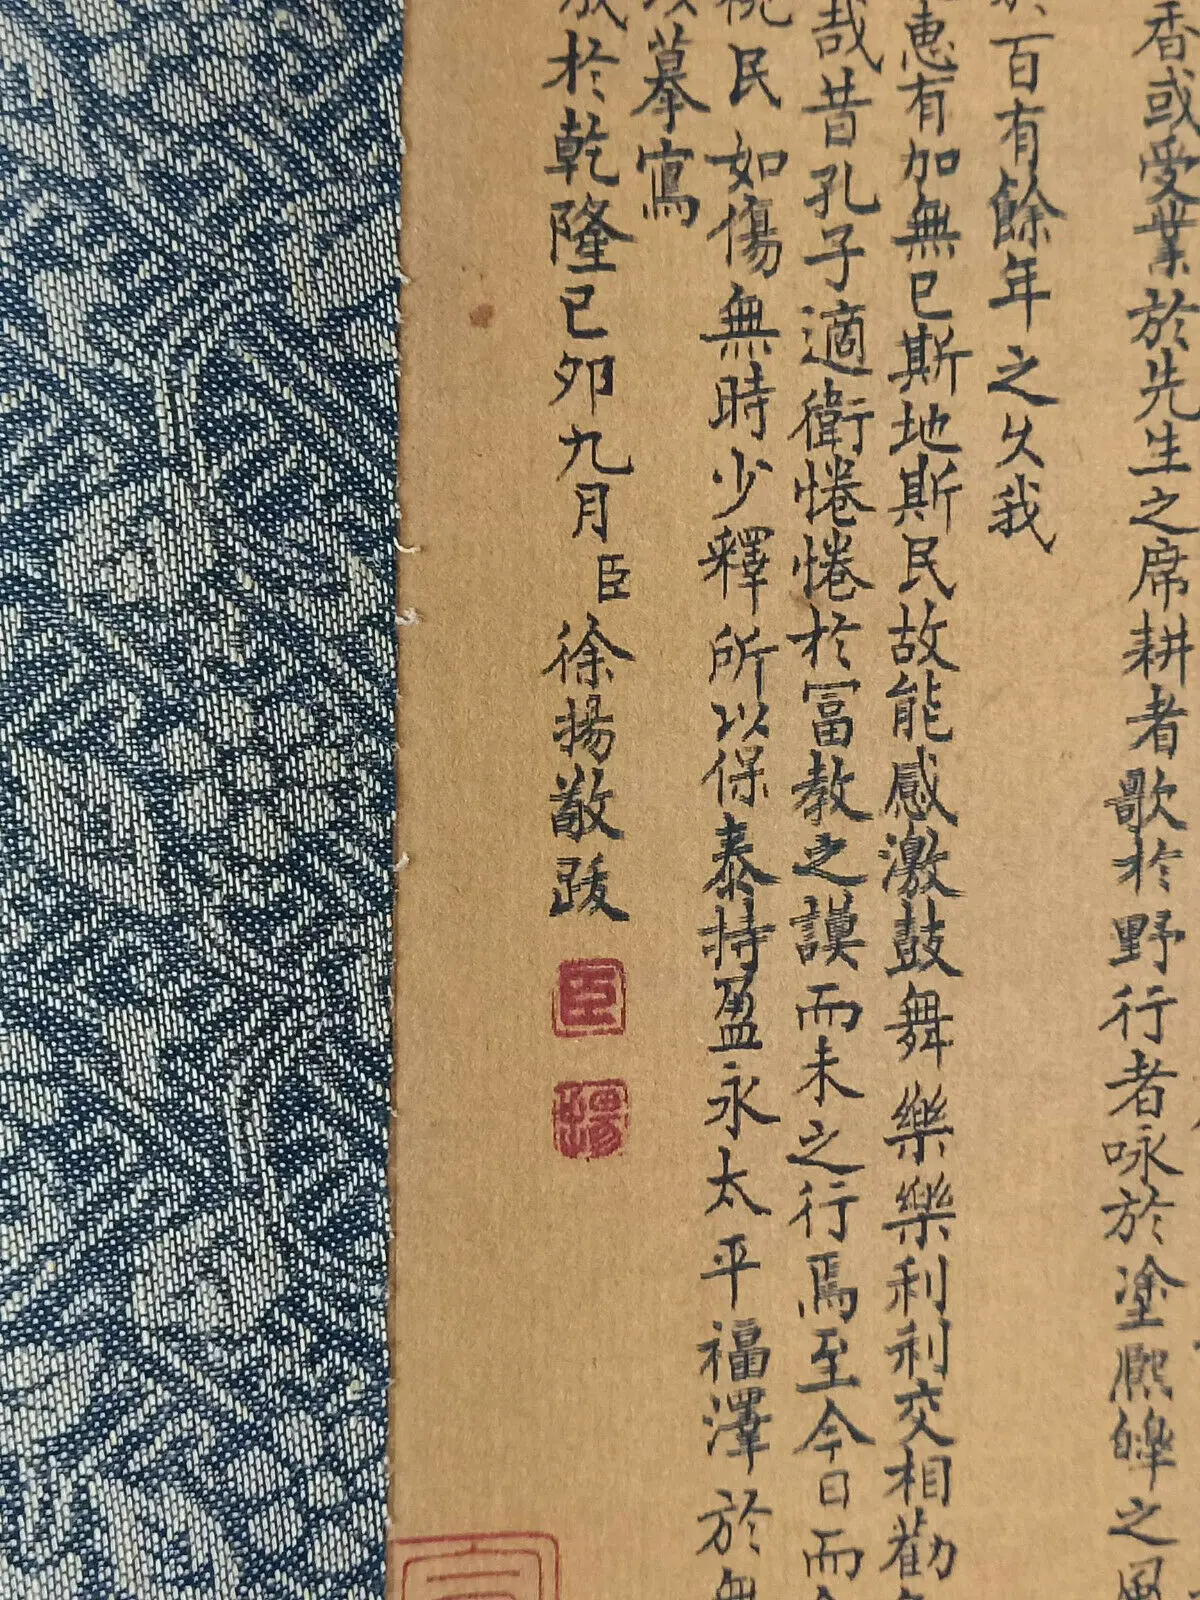 香或受業於先生之席耕者歌於野行者咏於塗熈皞之風
百有餘年之久我
惠有加無已斯地斯民故能感激鼓舞樂樂利利交相勸
哉昔孔子適衛惓惓於冨教之謨而未之行焉至今日而
民如傷無時少釋所以保泰持盈永太平福澤於無
摹寫
成於乾隆已夘九月臣徐揚敬跋
臣
揚